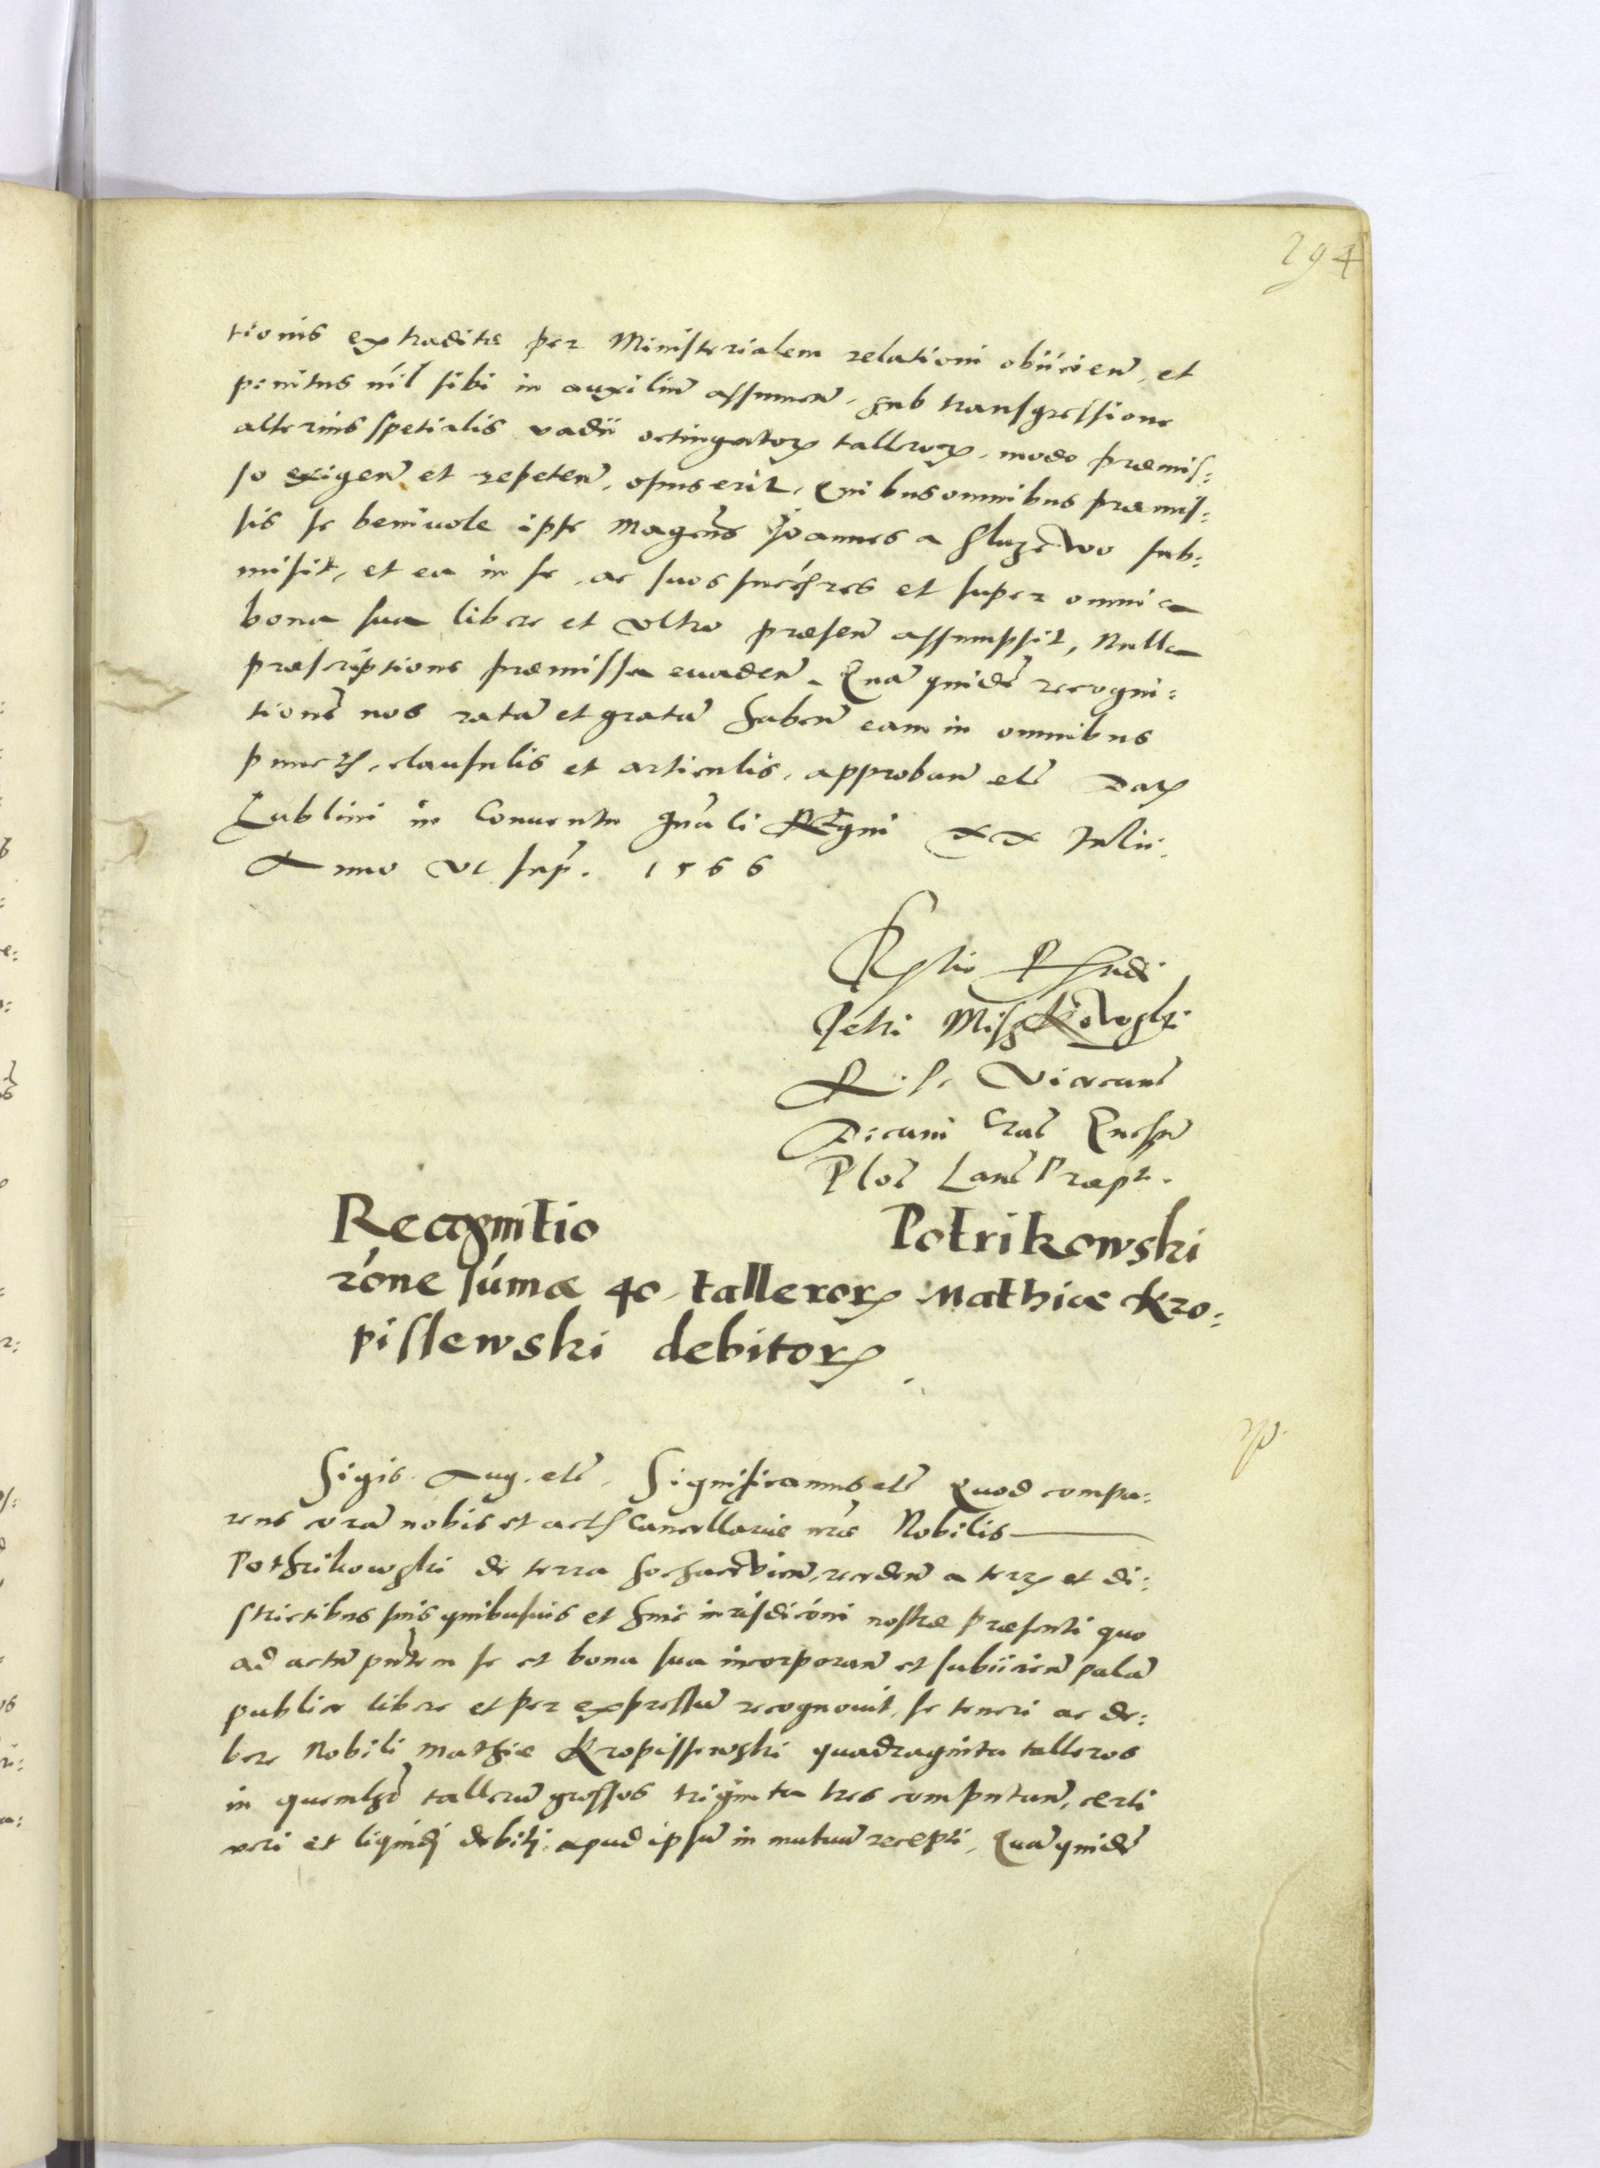 294
tionis extraditæ per Ministerialem relationi obiicien̄, et
penitus nil sibi in auxiliū assumen̄, sub transgressione
alterius spetialis vadii octingentorꝝ tallerorꝝ, modo præmis:
so exigen̄ et repeten̄, opus erit, Quibus omnibus præmis:
sis se beniuole ipse Magcūs Joannes a Sluzewo sub:
misit, et ea in se, ac suos succes̄res et super omnia
bona sua libere et vltro præsen̄ assumpsit, Nulla
præscriptione præmissa euaden̄. Quā quidē recogni:
tionē nos ratā et gratā haben̄ eam in omnibus
punctis, clausulis et articulis, approban̄ etc̄ Datꝝ
Lublini in Conuentu gn̄ali Regni XX Julii.
Anno vt sup̄. 1566
Rlatio Rndi
Petri Miszkowski
R. P. Vicecanc̄
Decani Crac̄ Gnesn̄
Ploc̄ Lanc̄ Præp̄t.
Recognitio Potrikowski
rōne sum̄æ 40 tallerorꝝ Mathiæ Kro:
pissewski debitorꝝ.
Sigis. Aug. etc̄. Significamus etc̄ Quod compa:
rens corā nobis et actis Cancellariæ nrǣ Nobilis
Pothrikowski de terra Sochacewien̄, receden̄ a terꝝ et di:
strictibus suis quibusuis et huic iurisdicōni nostræ præsenti quo
ad actū pn̄tem se et bona sua incorporan̄ et subiicien̄ palā
publice libere et per expressū recognouit, se teneri ac de:
bere Nobili Mathiæ Kropissewski quadraginta talleros
in quemlib̄t tallerū grossos triginta tres computan̄, certi
veri et liquidi debiti, apud ipsū in mutuū recepti, Quā quidē